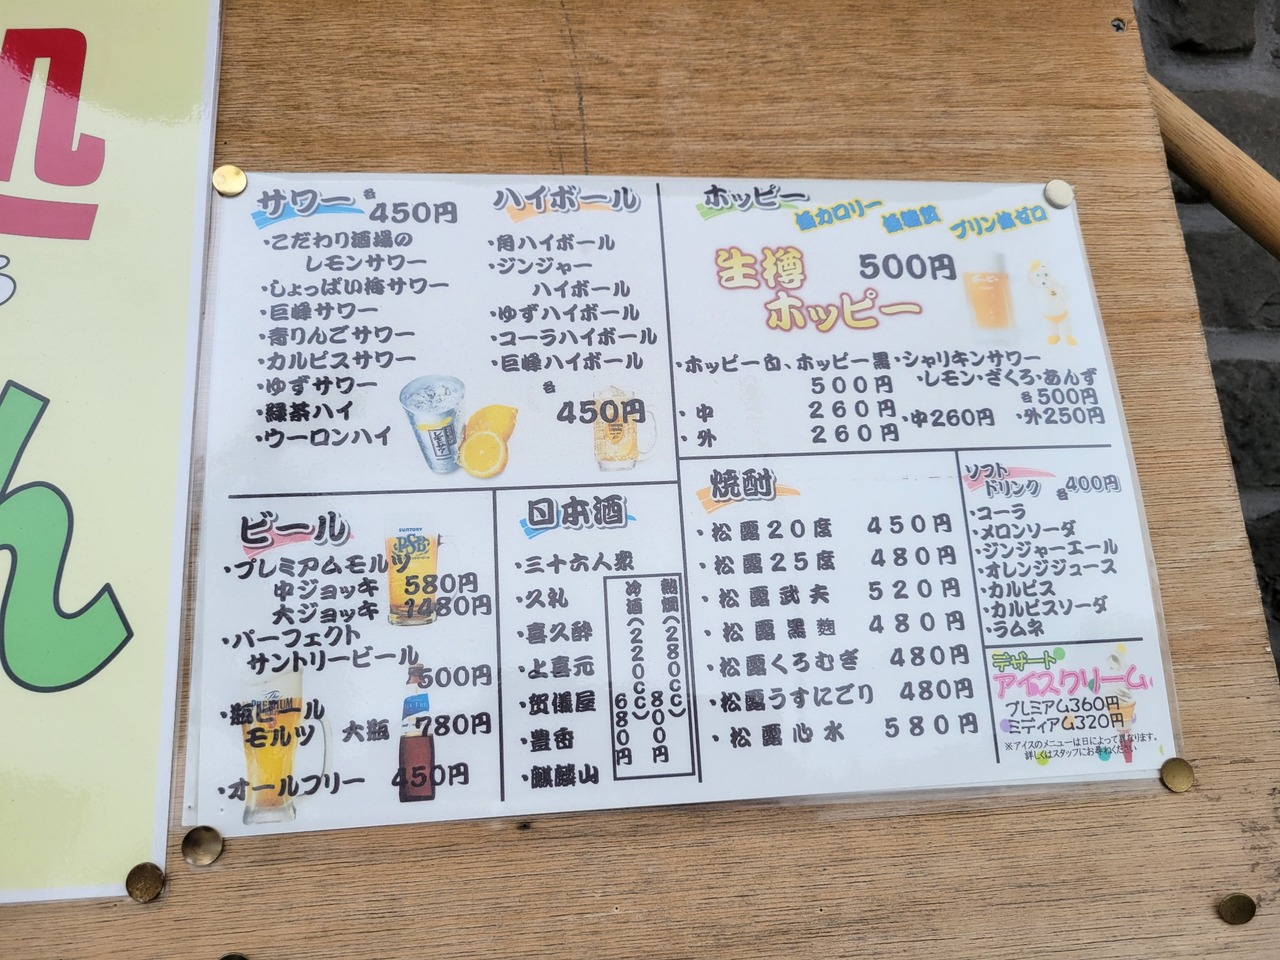 サワー 各450円
・こだわり酒場の
レモンサワー
・しょっぱい梅サワー
・巨峰サワー
・青りんごサワー
・カルピスサワー
・ゆずサワー
・緑茶ハイ
・ウーロンハイ
ハイボール
・角ハイボール
・ジンジャー
ハイボール
・ゆずハイボール
・コーラハイボール
・巨峰ハイボール
各
450円
ホッピー
低カロリー 低糖質 プリン体ゼロ
生樽 500円
ホッピー
・ホッピー白、ホッピー黒
500円
・中 260円
・外 260円
・シャリキンサワー
・レモン・ざくろ・あんず
各500円
・中260円 ・外250円
ビール
・プレミアムモルツ
中ジョッキ 580円
大ジョッキ 1480円
・パーフェクト
サントリービール
500円
・瓶ビール
モルツ 大瓶 780円
・オールフリー 450円
SUNTORY
PSB
The PREMIUM
日本酒
・三十六人衆
・久礼
・喜久酔
・上喜元
・賀儀屋
・豊香
・麒麟山
熱燗(280CC) 800円
冷酒(220CC) 680円
焼酎
・松露20度 450円
・松露25度 480円
・松露武夫 520円
・松露黒麹 480円
・松露くろむぎ 480円
・松露うすにごり 480円
・松露心水 580円
ソフト
ドリンク 各400円
・コーラ
・メロンソーダ
・ジンジャーエール
・オレンジジュース
・カルピス
・カルピスソーダ
・ラムネ
デザート
アイスクリーム
プレミアム360円
ミディアム320円
※アイスのメニューは日によって異なります。
詳しくはスタッフにお尋ねください
ん